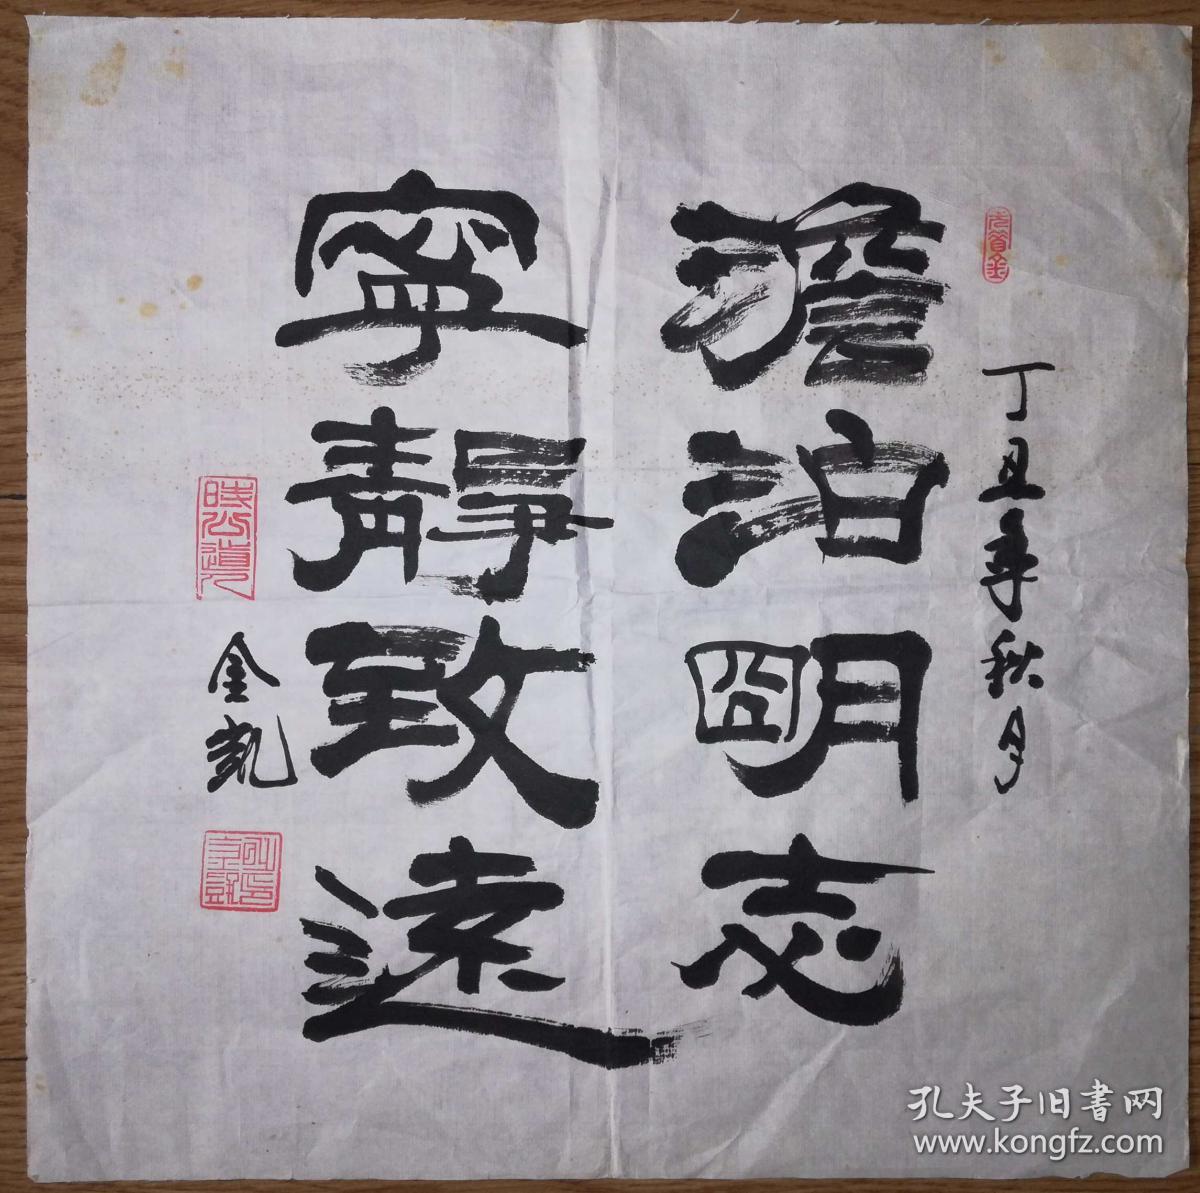 丁丑年秋月
澹泊明志
寧靜致遠
金凱
孔夫子旧書网
www.kongfz.com